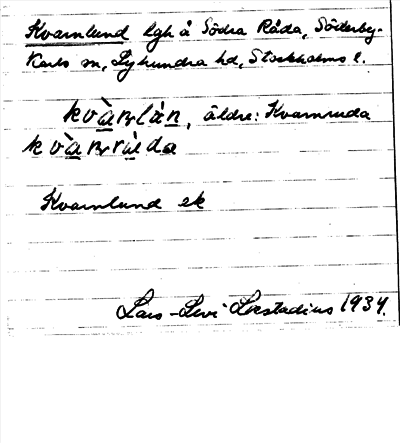 Kvarnlund lgh å Södra Råda, Söderby-
Karls sn, Lyhundra hd, Stockholms l.
kvàʀlàn, äldre: Kvarnruda
kvàʀrùda
Kvarnlund ek
Lars-Levi Læstadius 1934.